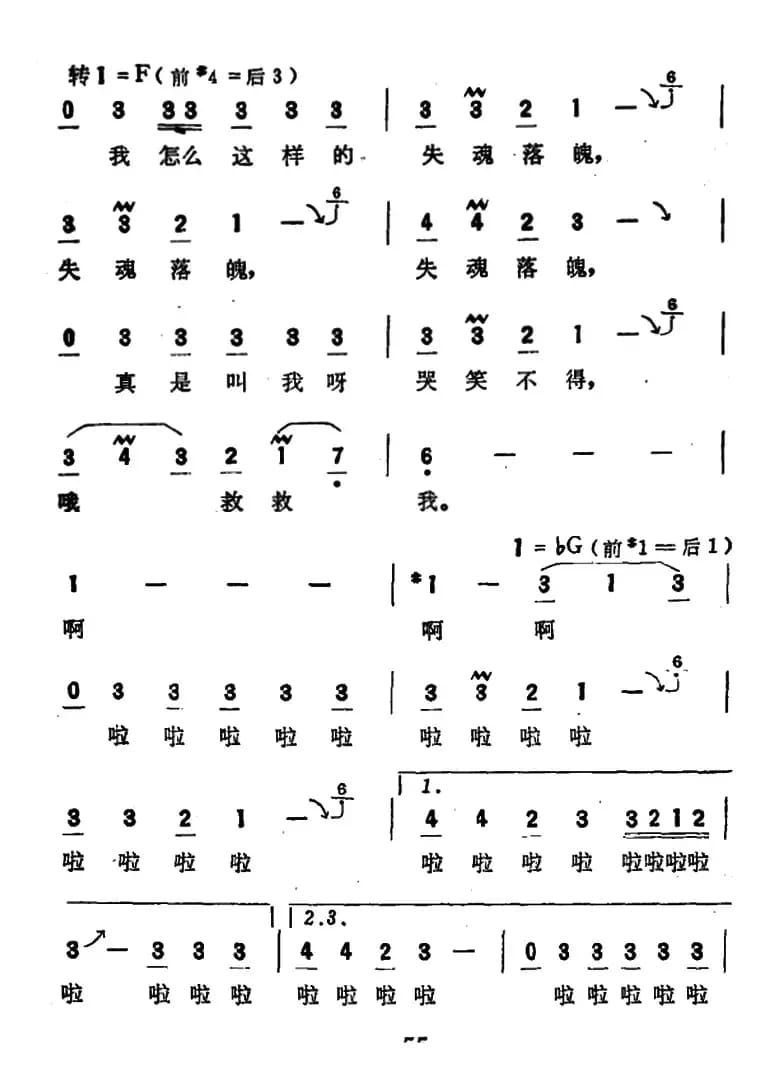 转1=F(前#4=后3)
6
0 3 33 3 3 3 | 3 3 2 1 — |
我 怎么 这 样 的 失 魂 落 魄,
6
3 3 2 1 — | 4 4 2 3 — |
失 魂 落 魄, 失 魂 落 魄,
6
0 3 3 3 3 3 | 3 3 2 1 — |
真 是 叫 我 呀 哭 笑 不 得,
3 4 3 2 1 7 | 6 — — — |
哦 救 救 我。
1=♭G(前#1=后1)
1 — — — | #1 — 3 1 3 |
啊 啊 啊
6
0 3 3 3 3 3 | 3 3 2 1 — |
啦 啦 啦 啦 啦 啦 啦 啦 啦
6 1.
3 3 2 1 — | 4 4 2 3 3212 |
啦 啦 啦 啦 啦 啦 啦 啦 啦啦啦啦
2.3.
3 — 3 3 3 | 4 4 2 3 — | 0 3 3 3 3 3 |
啦 啦 啦 啦 啦 啦 啦 啦 啦 啦 啦 啦 啦